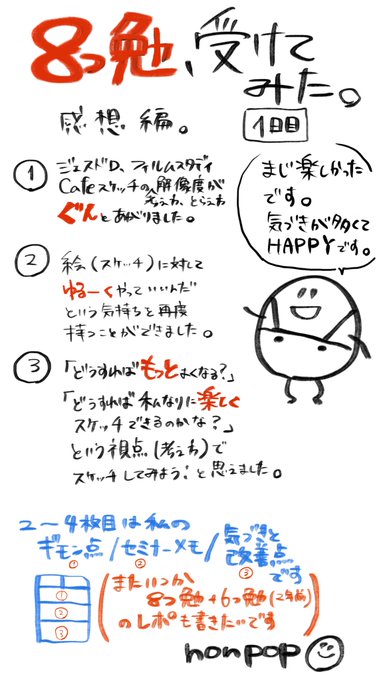 8つ勉、受けて
みた。
感想編。
1日目
① ジェスドD、フィルムスタディ
Cafeスケッチの解像度が
考え方、とらえ方
ぐんとあがりました。
まじ楽しかった
です。
気づきが多くて
HAPPYです。
② 絵(スケッチ)に対して
ゆるーくやっていいんだ
という気持ちを再度
持つことができました。
③ 「どうすればもっとよくなる?」
「どうすれば私なりに楽しく
スケッチできるのかな?」
という視点(考え方)で
スケッチしてみよう!と思えました。
2〜4枚目は私の
ギモン点/セミナーメモ/気づきと
改善点
① ② ③
です
①
②
③
(またいつか
8つ勉+6つ勉(2年前)
のレポも書きたいです)
nonpop